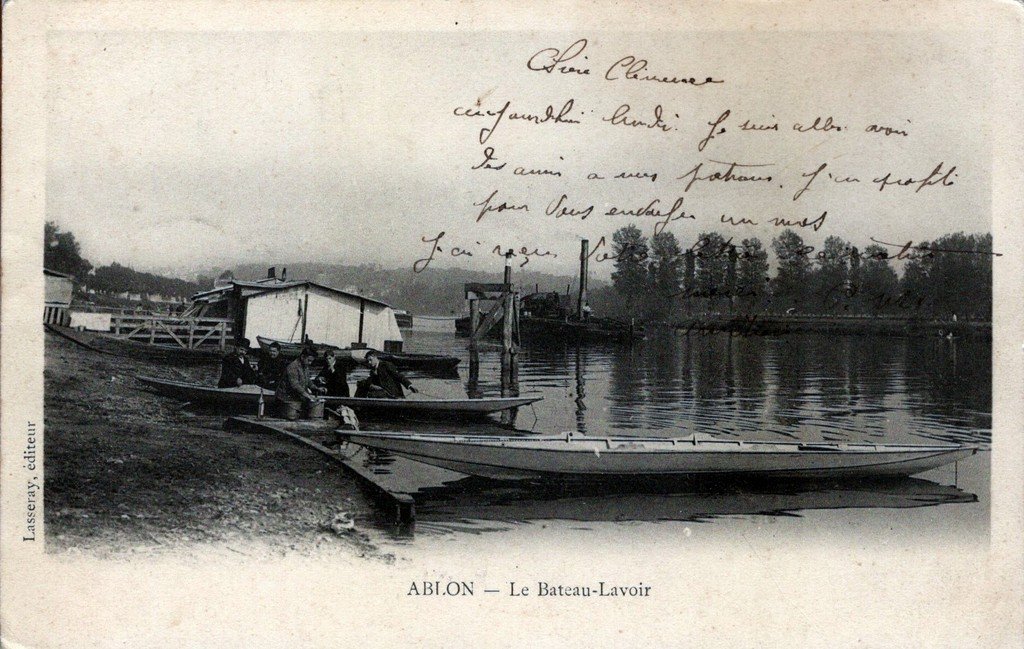 Chère Clémence
aujourdhui lundi. Je suis allée voir
des amis a mes patrons. J'en profite
pour vous envoyer un mot
J'ai reçu votre lettre
ABLON — Le Bateau-Lavoir
Lasseray, éditeur